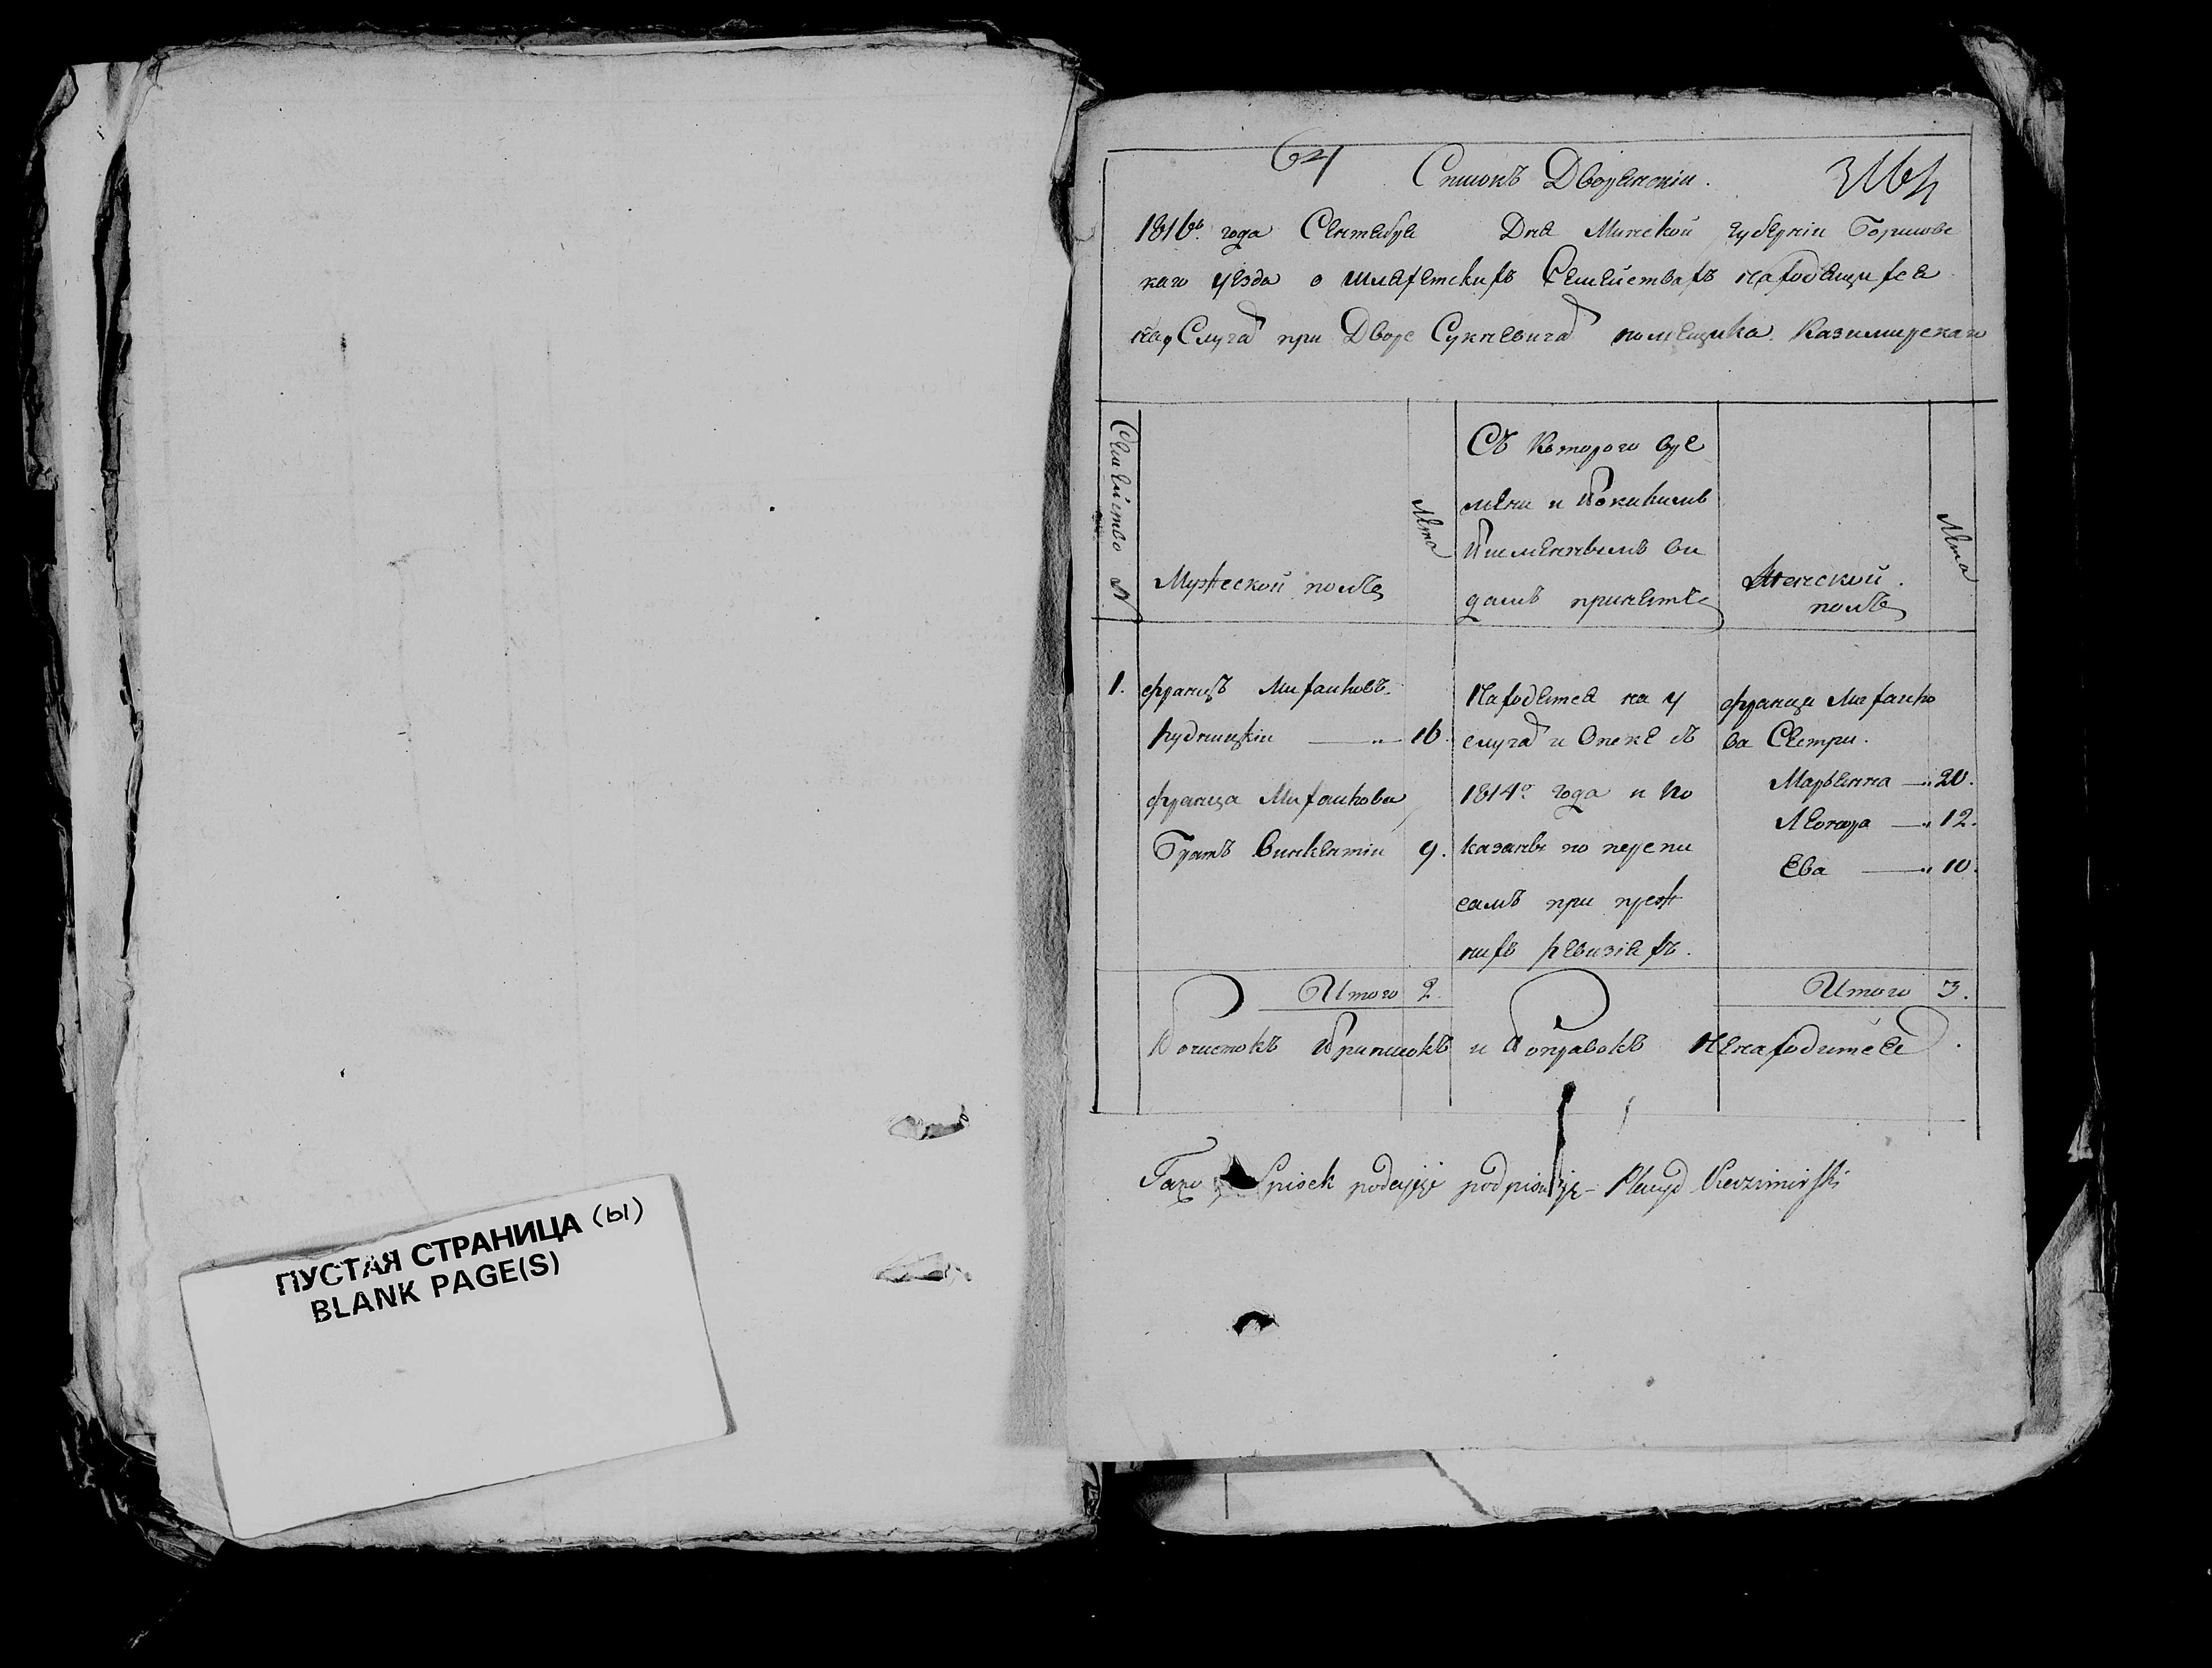 ПУСТАЯ СТРАНИЦА (Ы)
BLANK PAGE(S)
64
Списокъ Дворянскiи.
1816го года Сентября Дня Минской губернiи Борисовс
каго уезда о шляхетскихъ Семействахъ находящихся
на услугахъ при Дворе Сукневичахъ помещика Казимирскаго
Семейство N
Мужеской полъ
Лета
Съ Которого вре
мени и Покакимъ
Писменнымъ ви
дамъ принятъ
Женской
полъ
Лета
1. Францъ Михайловъ
Рудницкiи — 16.
Франца Михайлова
Братъ Викентiи 9.
Находятся на у
слугахъ и Опеке съ
1814го года и по
казаны по перепи
самъ при преж
нихъ ревизiяхъ.
Франца Михайло
ва Сестри.
Марьянна — 20.
Леонора — 12.
Ева — 10.
Итого 2.
Итого 3.
Почистокъ Приписокъ и Поправокъ Ненаходится.
Spisek podający podpisuję